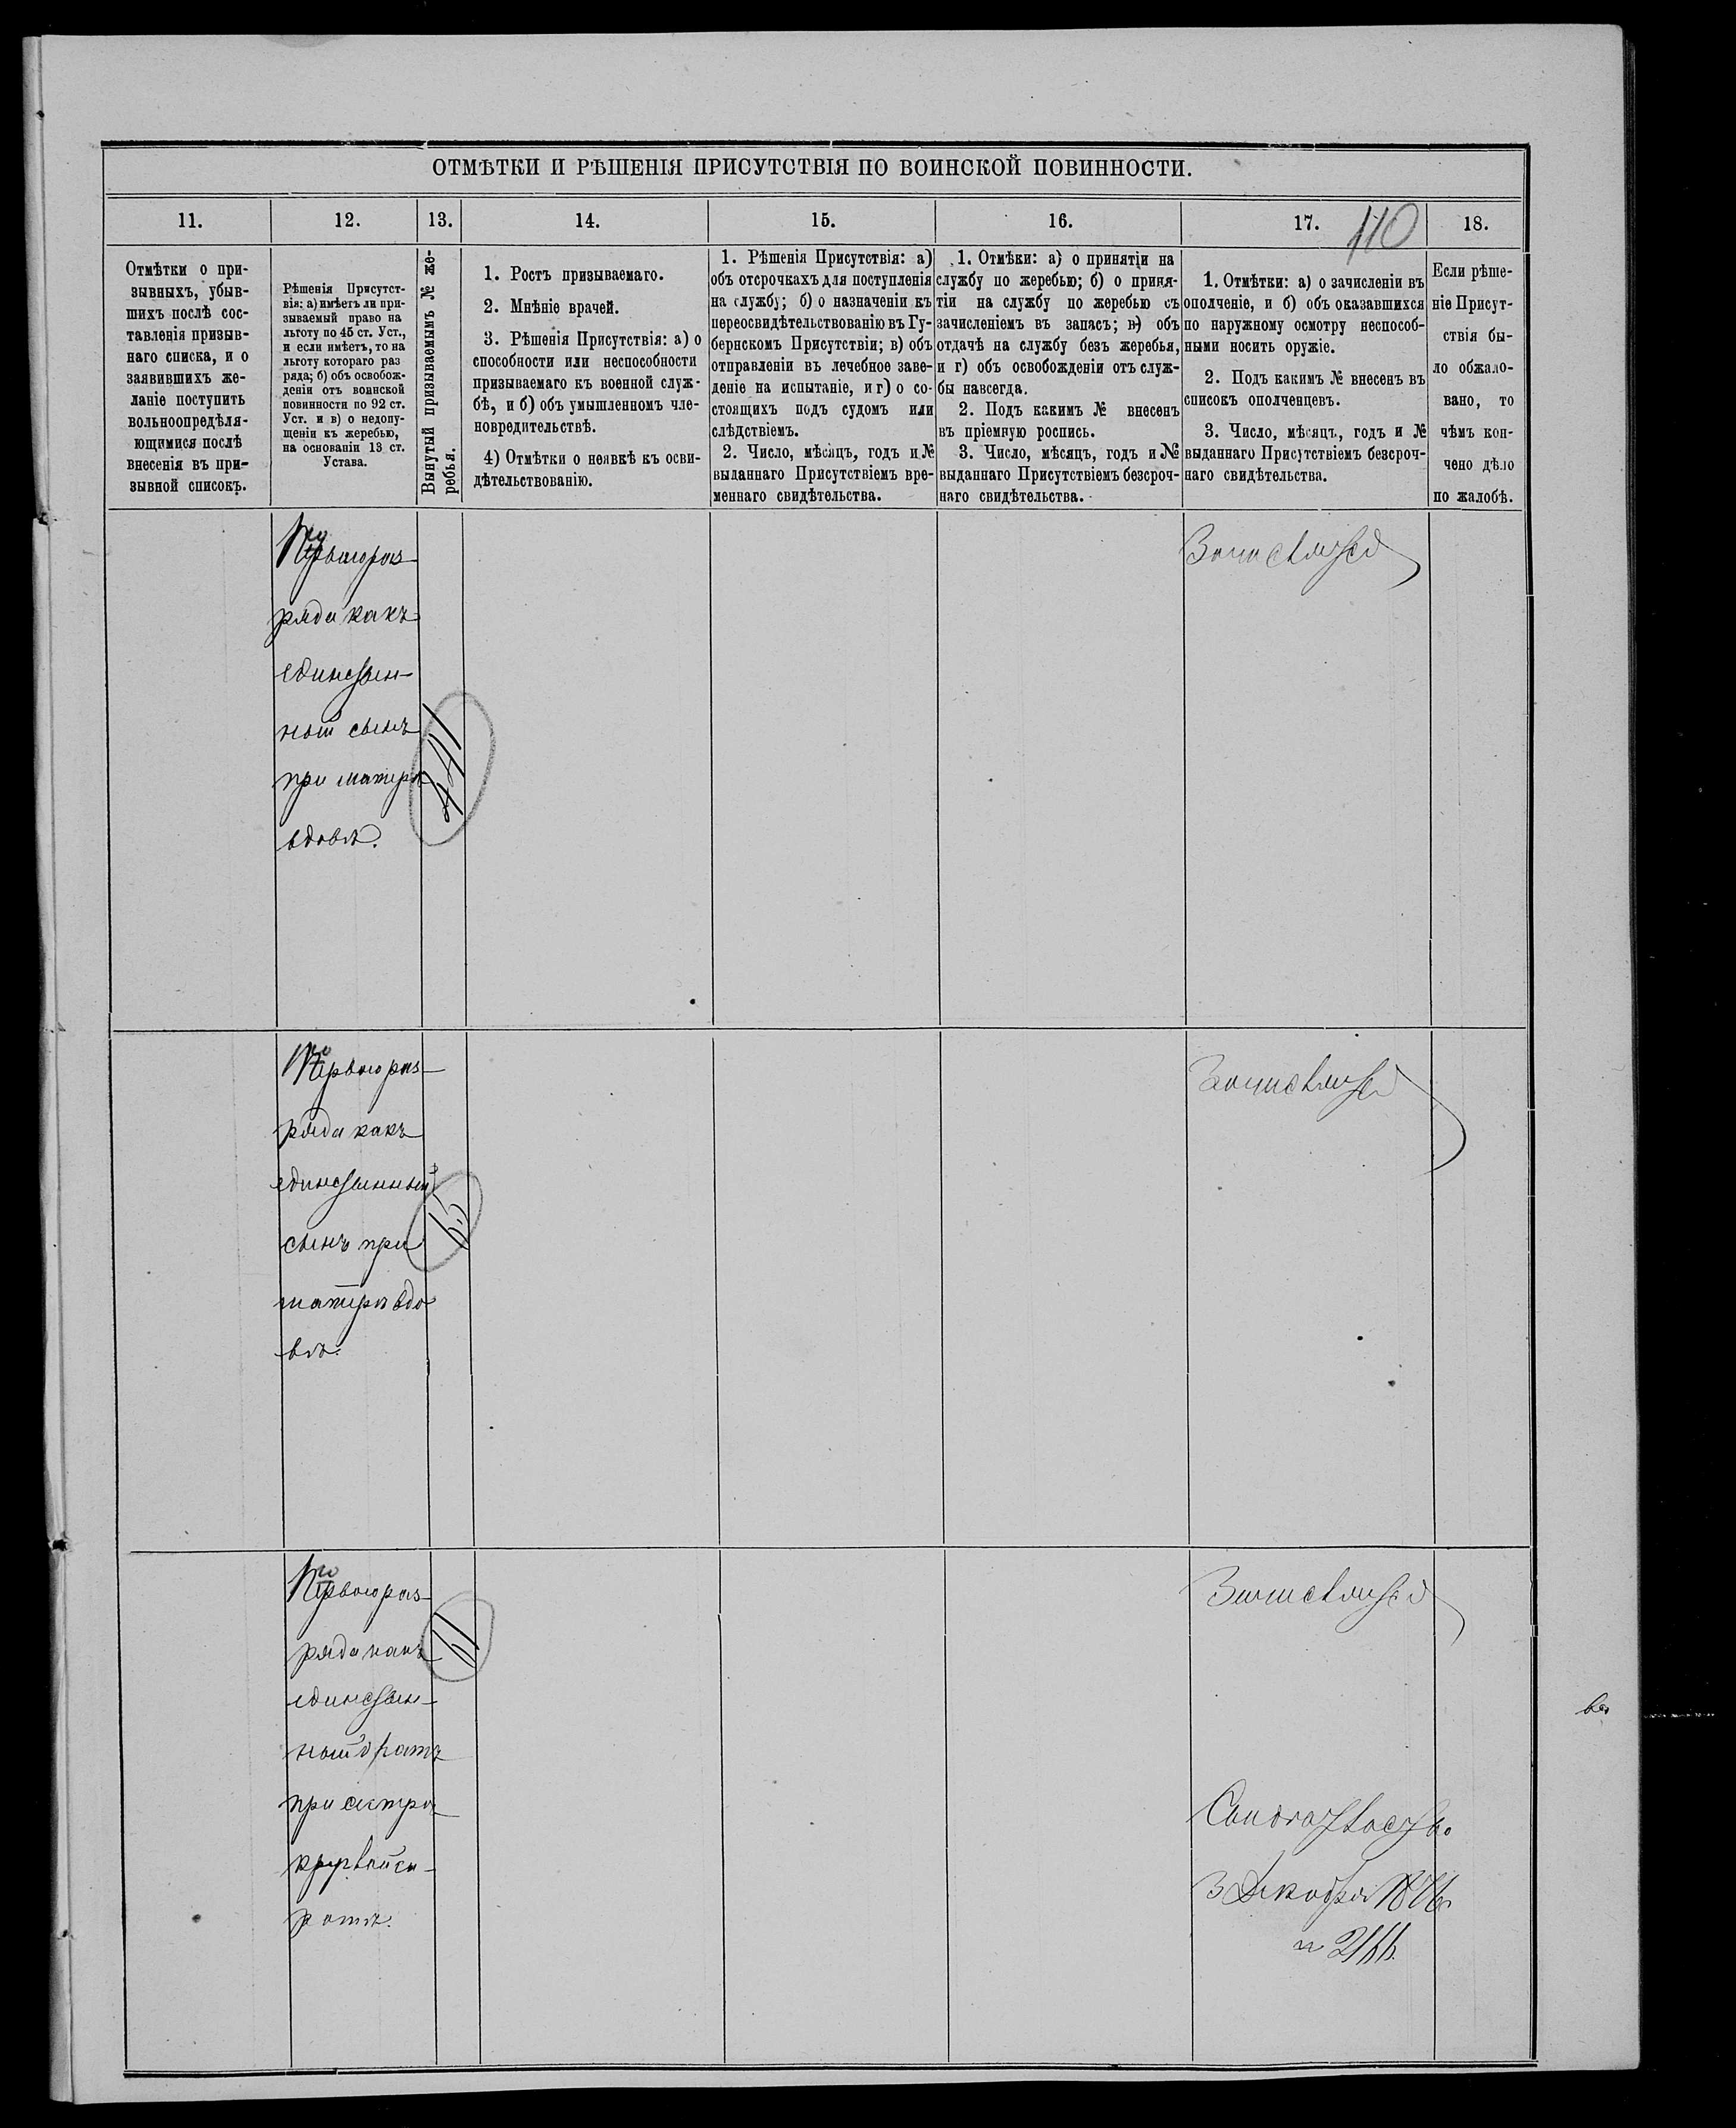 ОТМѢТКИ И РѢШЕНІЯ ПРИСУТСТВІЯ ПО ВОИНСКОЙ ПОВИННОСТИ.
11.
12.
13.
14.
15.
16.
17.
110
18.
Отмѣтки о при-
зывныхъ, убыв-
шихъ послѣ сос-
тавленія призыв-
наго списка, и о
заявившихъ же-
ланіе поступить
вольноопредѣля-
ющимися послѣ
внесенія въ при-
зывной списокъ.
Рѣшенія Присутст-
вія: а) имѣетъ ли при-
зываемый право на
льготу по 45 ст. Уст.,
и если имѣетъ, то на
льготу котораго раз
ряда; б) объ освобож-
деніи отъ воинской
повинности по 92 ст.
Уст. и в) о недопу-
щеніи къ жеребью,
на основаніи 13 ст.
Устава.
Вынутый призываемымъ № же-
ребья.
1. Ростъ призываемаго.
2. Мнѣніе врачей.
3. Рѣшенія Присутствія: а) о
способности или неспособности
призываемаго къ военной служ-
бѣ, и б) объ умышленномъ чле-
новредительствѣ.
4) Отмѣтки о неявкѣ къ осви-
дѣтельствованію.
1. Рѣшенія Присутствія: а)
объ отсрочкахъ для поступленія
на службу; б) о назначеніи къ
переосвидѣтельствованію въ Гу-
бернскомъ Присутствіи; в) объ
отправленіи въ лечебное заве-
деніе на испытаніе, и г) о со-
стоящихъ подъ судомъ или
слѣдствіемъ.
2. Число, мѣсяцъ, годъ и №
выданнаго Присутствіемъ вре-
меннаго свидѣтельства.
1. Отмѣки: а) о принятіи на
службу по жеребью; б) о приня-
тіи на службу по жеребью съ
зачисленіемъ въ запасъ; в) объ
отдачѣ на службу безъ жеребья,
и г) объ освобожденіи отъ служ-
бы навсегда.
2. Подъ какимъ № внесенъ
въ пріемную роспись.
3. Число, мѣсяцъ, годъ и №
выданнаго Присутствіемъ безсроч-
наго свидѣтельства.
1. Отмѣтки: а) о зачисленіи въ
ополченіе, и б) объ оказавшихся
по наружному осмотру неспособ-
ными носить оружіе.
2. Подъ какимъ № внесенъ въ
списокъ ополченцевъ.
3. Число, мѣсяцъ, годъ и №
выданнаго Присутствіемъ безсроч-
наго свидѣтельства.
Если рѣше-
ніе Присут-
ствія бы-
ло обжало-
вано, то
чѣмъ кон-
чено дѣло
по жалобѣ.
Перваго раз-
ряда какъ
единствен-
ный сынъ
при матерѣ
вдовѣ.
441
Зачислить
Перваго раз-
ряда какъ
единственный
сынъ при
матерѣ вдо
вѣ.
65
Зачислить
Перваго раз-
ряда какъ
единствен-
ный братъ
при сестрѣ
круглой си-
ротѣ.
61
Зачислить
Свидѣтельство
3 Декабря 1876
№